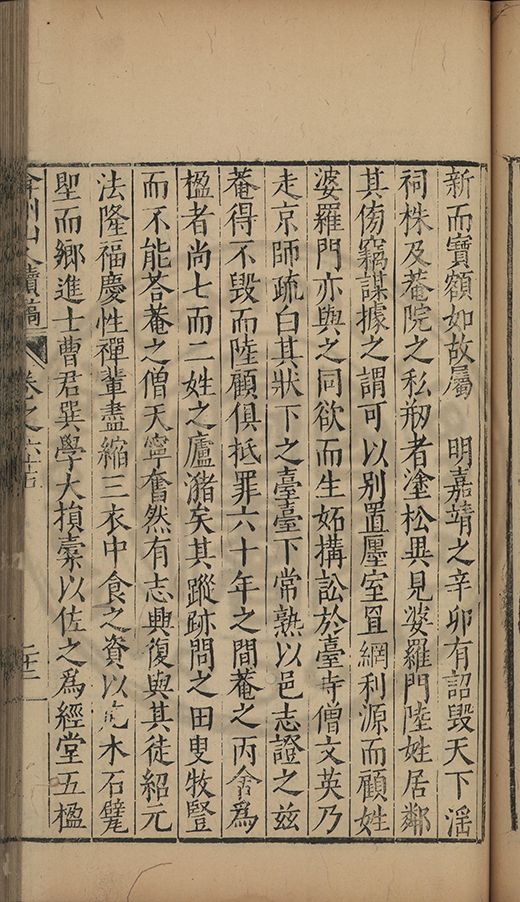 新而寶額如故屬　明嘉靖之辛卯有詔毀天下淫
祠株及菴院之私剏者塗松異見婆羅門陸姓居鄰
其傍竊謀據之謂可以別置廛室罝網利源而顧姓
婆羅門亦與之同欲而生妬搆訟於臺寺僧文英乃
走京師疏白其狀下之臺臺下常熟以邑志證之兹
菴得不毀而陸顧俱抵罪六十年之間菴之丙舍爲
楹者尚七而二姓之廬瀦矣其蹤跡問之田叟牧豎
而不能荅菴之僧天寧奮然有志興復與其徒紹元
法隆福慶性禪輩盡縮三衣中食之資以庀木石甓
聖而鄉進士曹君巽學大損橐以佐之爲經堂五楹
弇州山人續稿 卷之六十 二十二